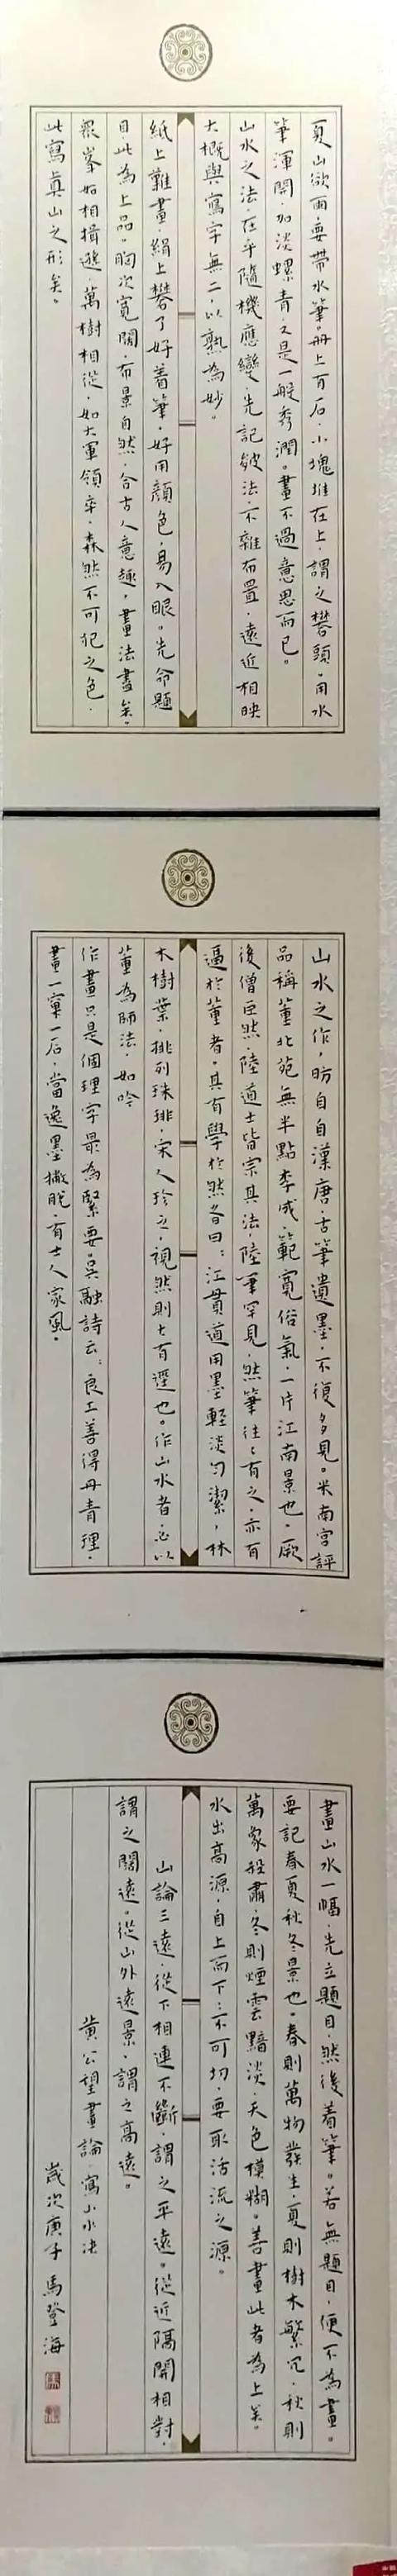 夏山欲雨，要帶水筆。册上有石，小塊堆在上，謂之礬頭。用水
筆渾開，加淡螺青，又是一般秀潤。畫不過意思而已。
山水之法，在乎隨機應變，先記皴法，不雜布置，遠近相映，
大概與寫字無二，以熟為妙。
紙上難畫，絹上礬了好着筆，好用顏色，易入眼。先命題
目，此為上品。胸次寬闊，布景自然，合古人意趣，畫法盡矣。
眾峯如相揖遜，萬樹相從，如大軍領卒，森然不可犯之色，
此寫真山之形矣。
山水之作，昉自自漢唐，古筆遺墨，不復多見。米南宮評
品稱董北苑無半點李成、範寬俗氣，一片江南景也。厥
後僧巨然、陸道士皆宗其法，陸筆罕見，然筆往往有之，亦有
逼於董者。其有學於然者曰：江貫道用墨輕淡勻潔，林
木樹葉，排列珠排，宋人珍之，視然則大有逕也。作山水者，必以
董為師法，如吟
作畫只是個理字最為緊要。吳融詩云：良工善得丹青理。
畫一窠一石，當逸墨撇脫，有士人家風。
畫山水一幅，先立題目，然後着筆。若無題目，便不為畫。
要記春夏秋冬景也。春則萬物發生，夏則樹木繁冗，秋則
萬象般肅，冬則煙雲黯淡，天色模糊。善畫此者為上矣。
水出高源，自上而下，不可切，要取活流之源。
山論三遠，從下相連不斷，謂之平遠。從近隔開相對，
謂之闊遠。從山外遠景，謂之高遠。
黃公望畫論，寫山水決
歲次庚子 馬登海